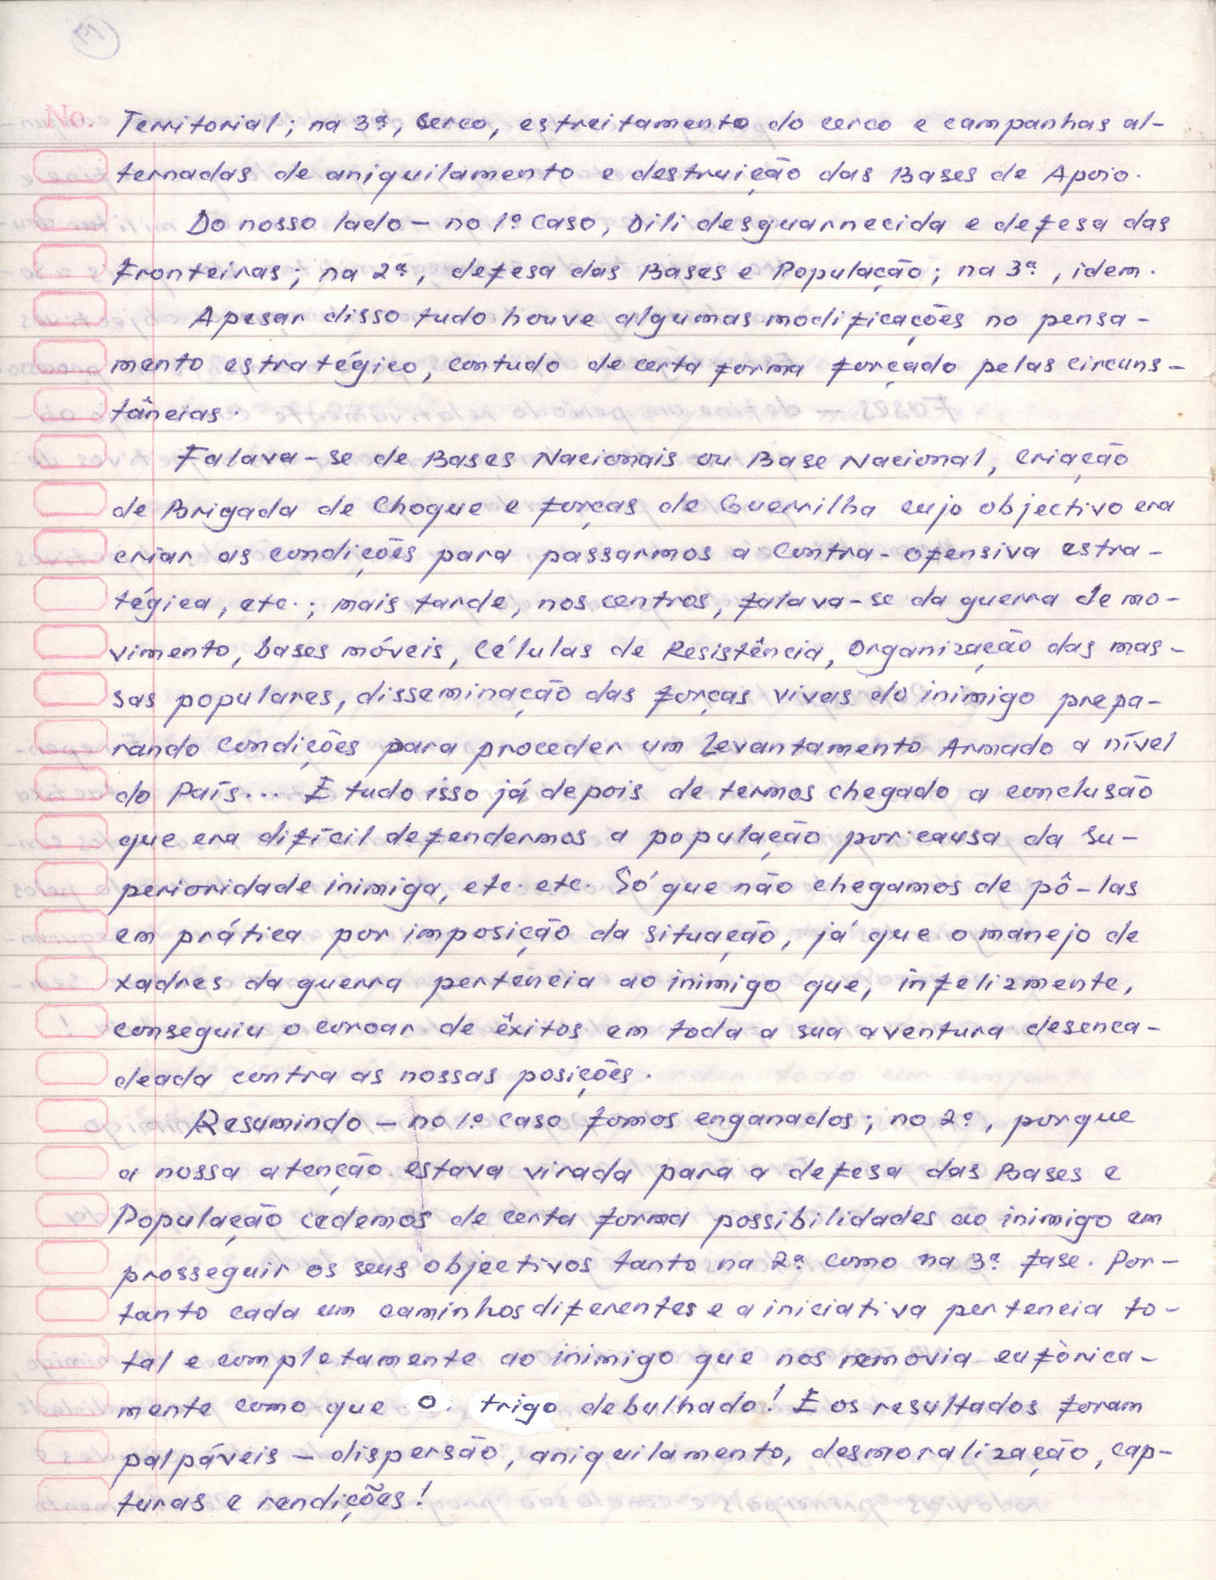 Territorial; na 3ª, Cerco, estreitamento do cerco e campanhas al-
ternadas de aniquilamento e destruição das Bases de Apoio.
Do nosso lado — no 1º caso, Dili desguarnecida e defesa das
Fronteiras; na 2ª, defesa das Bases e População; na 3ª, idem.
Apesar disso tudo houve algumas modificações no pensa-
mento estratégico, contudo de certa forma forçado pelas circuns-
tâncias.
Falava-se de Bases Nacionais ou Base Nacional, criação
de Brigada de Choque e forças de Guerrilha cujo objectivo era
criar as condições para passarmos a Contra-ofensiva estra-
tégica, etc.; mais tarde, nos centros, falava-se da guerra de mo-
vimento, bases móveis, Células de Resistência, Organização das mas-
sas populares, disseminação das forças vivas do inimigo prepa-
rando condições para proceder um Levantamento Armado a nível
do País... E tudo isso já depois de termos chegado a conclusão
que era difícil defendermos a população por causa da su-
perioridade inimiga, etc. etc. Só que não chegamos de pô-las
em prática por imposição da situação, já que o manejo de
xadres da guerra pertencia ao inimigo que, infelizmente,
conseguiu o coroar de êxitos em toda a sua aventura desenca-
deada contra as nossas posições.
Resumindo — no 1º caso fomos enganados; no 2º, porque
a nossa atenção estava virada para a defesa das Bases e
População cedemos de certa forma possibilidades ao inimigo em
prosseguir os seus objectivos tanto na 2ª como na 3ª fase. Por-
tanto cada um caminhos diferentes e a iniciativa pertencia to-
tal e completamente ao inimigo que nos removia eufòrica-
mente como que o trigo debulhado! E os resultados foram
palpáveis — dispersão, aniquilamento, desmoralização, cap-
turas e rendições!